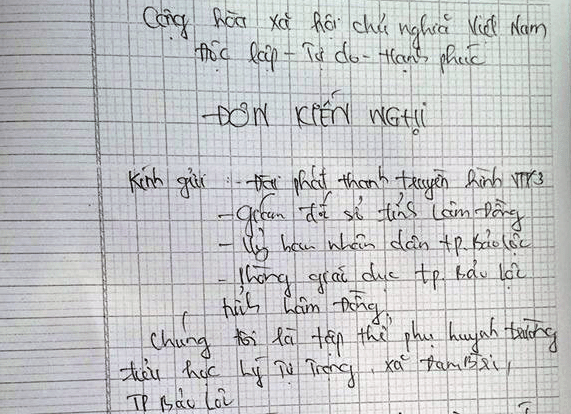 Cộng hòa xã hội chủ nghĩa Việt Nam
Độc lập - Tự do - Hạnh phúc
ĐƠN KIẾN NGHỊ
Kính gửi: - Đài phát thanh truyền hình VTV3
- Giám đốc sở tỉnh Lâm Đồng
- Uỷ ban nhân dân tp. Bảo Lộc
- Phòng giáo dục tp. Bảo Lộc
tỉnh Lâm Đồng.
Chúng tôi là tập thể phụ huynh trường
tiểu học Lý Tự Trọng, xã Đam B'ri,
TP Bảo Lộc